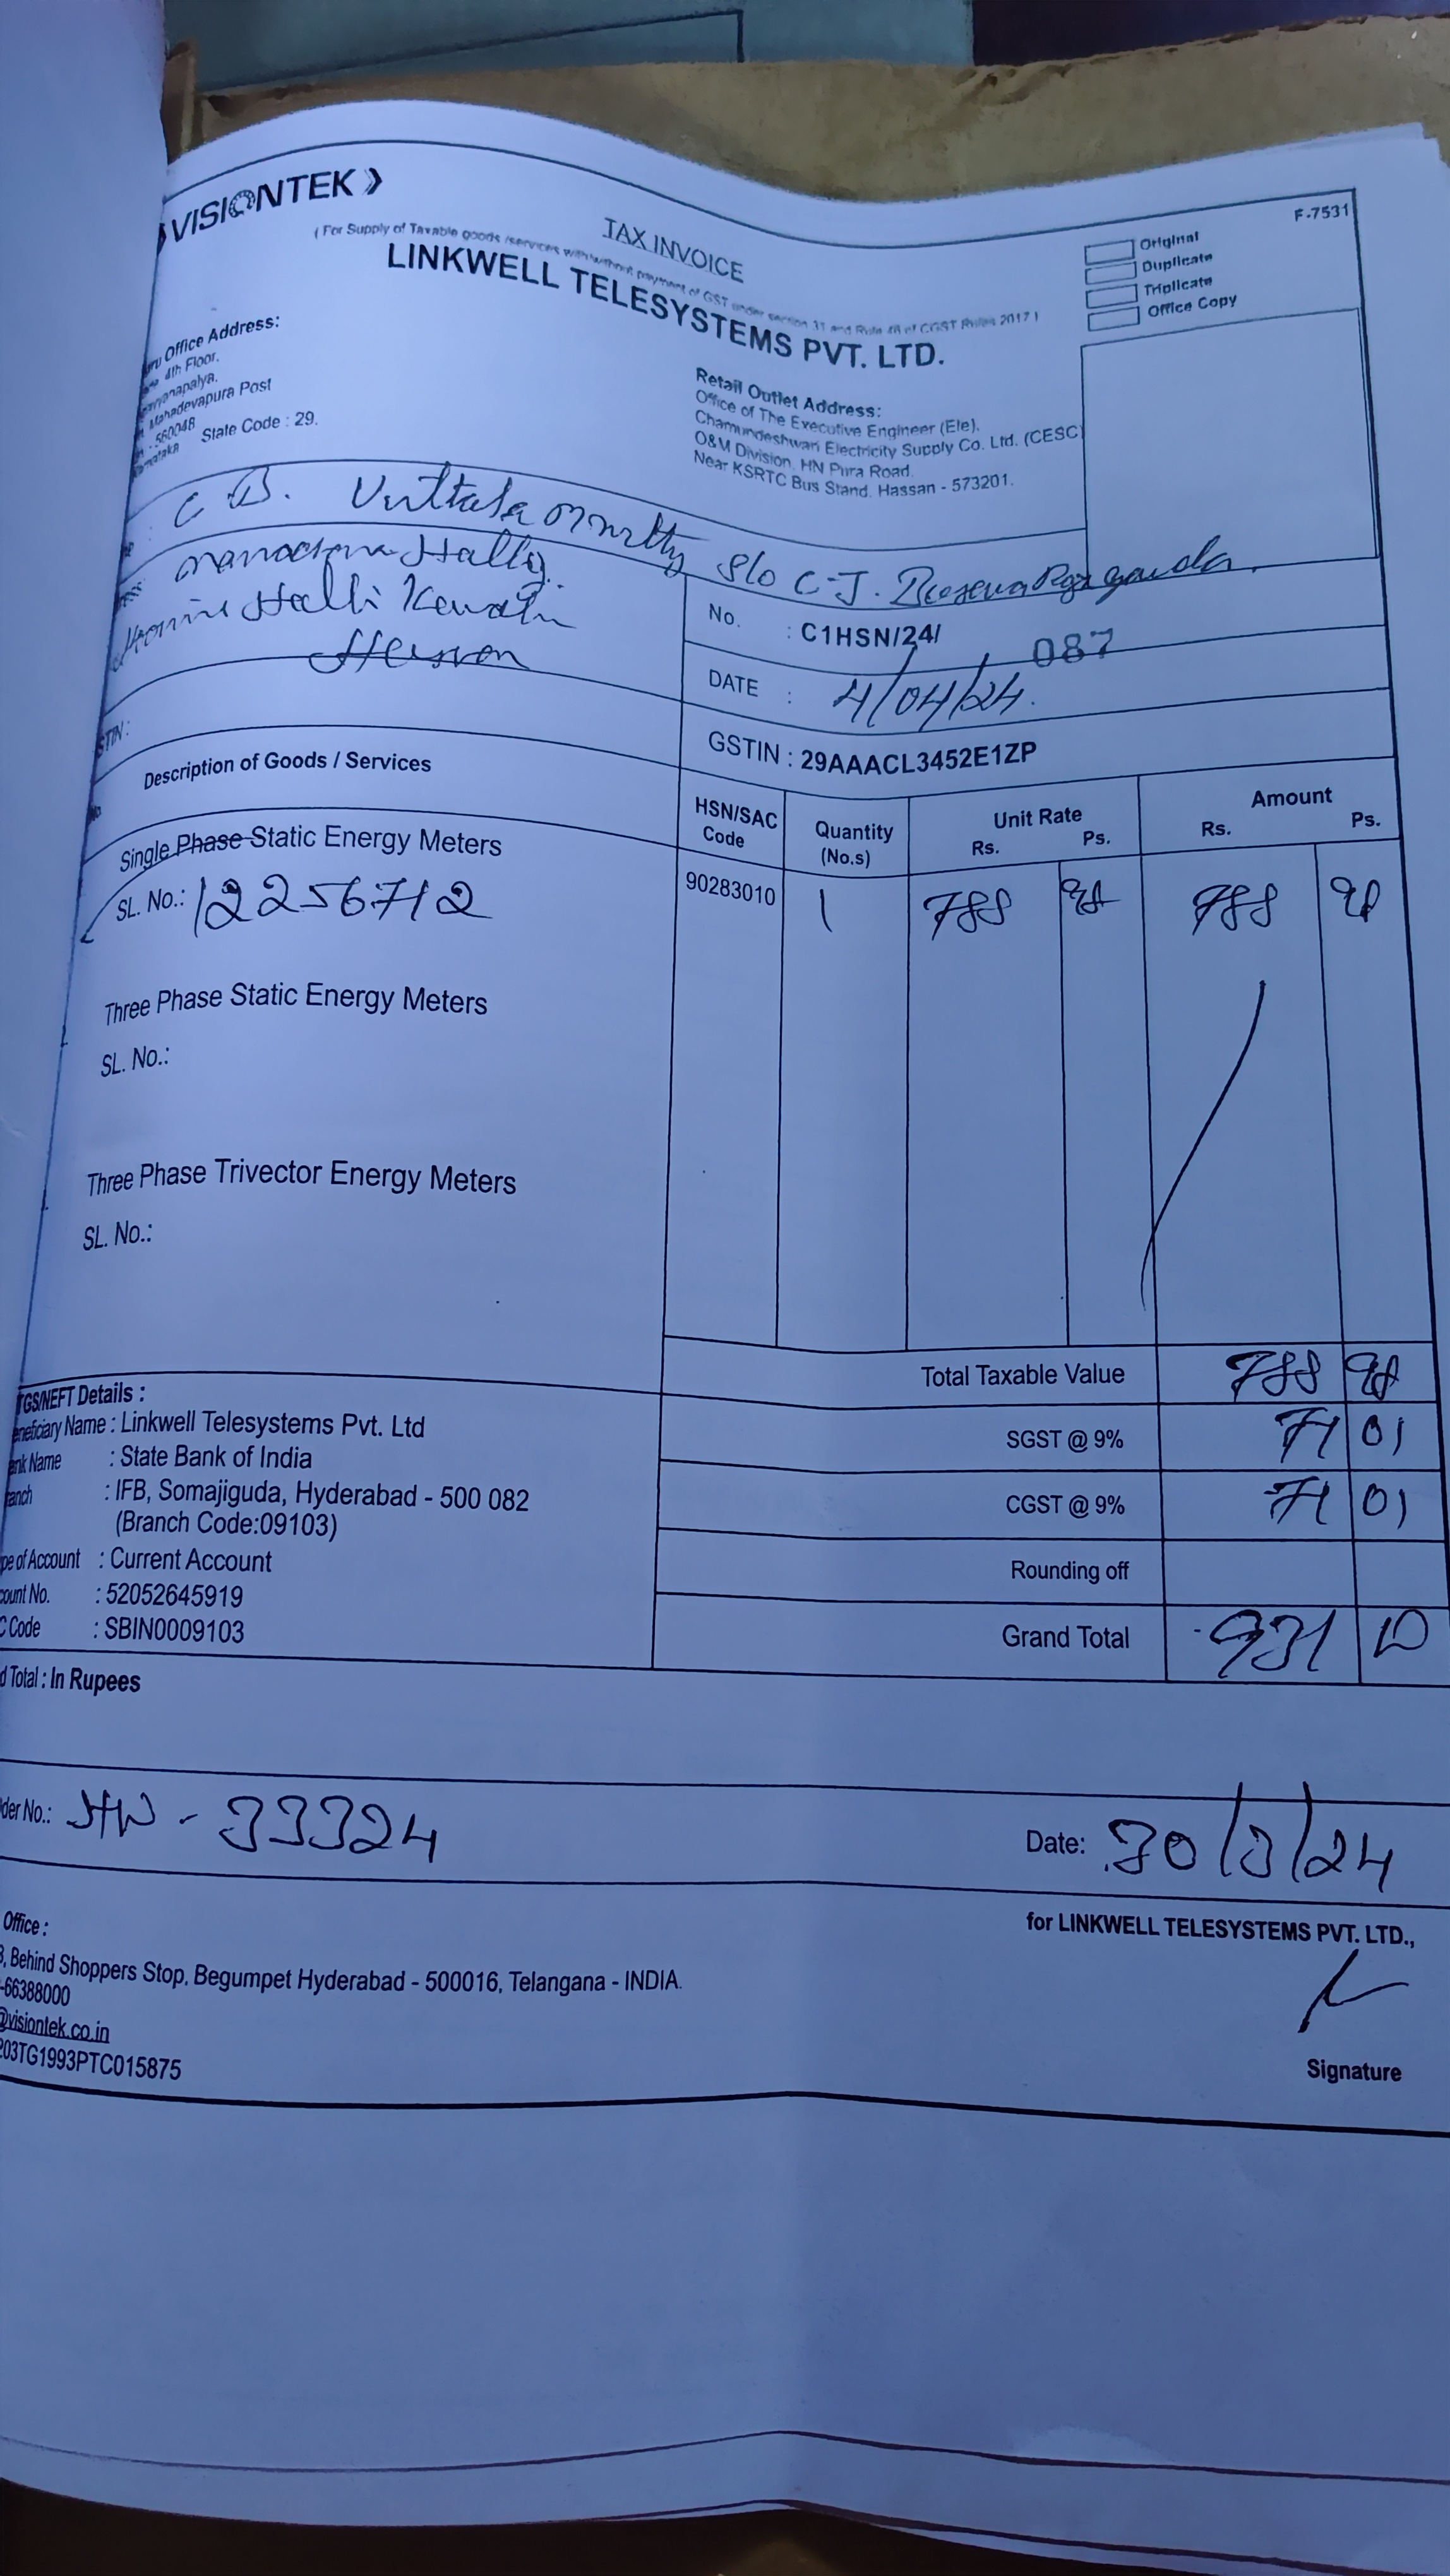 VISIONTEK
F-7531
TAX INVOICE
( For Supply of Taxable goods /services with/without payment of GST under section 31 and Rule 46 of CGST Rules 2017 )
LINKWELL TELESYSTEMS PVT. LTD.
Original
Duplicate
Triplicate
Office Copy
Office Address:
4th Floor,
Mahadevapura Post
560048
State Code : 29.
Retail Outlet Address:
Office of The Executive Engineer (Ele).
Chamundeshwari Electricity Supply Co. Ltd. (CESC)
O&M Division, HN Pura Road.
Near KSRTC Bus Stand. Hassan - 573201.
C B. S/o C-J.
Halli
Halli
Hassan
No. : C1HSN/24/ 087
DATE : 4/04/24.
GSTIN : 29AAACL3452E1ZP
Description of Goods / Services
HSN/SAC Code
Quantity (No.s)
Unit Rate
Rs. Ps.
Amount
Rs. Ps.
Single Phase Static Energy Meters
SL. No.: 12256712
90283010 1 788 98 788 98
Three Phase Static Energy Meters
SL. No.:
Three Phase Trivector Energy Meters
SL. No.:
Total Taxable Value 788 98
SGST @ 9% 71 01
CGST @ 9% 71 01
Rounding off
Grand Total 931 10
GS/NEFT Details :
Name : Linkwell Telesystems Pvt. Ltd
Name : State Bank of India
: IFB, Somajiguda, Hyderabad - 500 082
(Branch Code:09103)
of Account : Current Account
No. : 52052645919
Code : SBIN0009103
Total : In Rupees
der No.: HW - 33324
Date: 30/3/24
for LINKWELL TELESYSTEMS PVT. LTD.,
Office :
Behind Shoppers Stop, Begumpet Hyderabad - 500016, Telangana - INDIA.
-66388000
@visiontek.co.in
203TG1993PTC015875
Signature